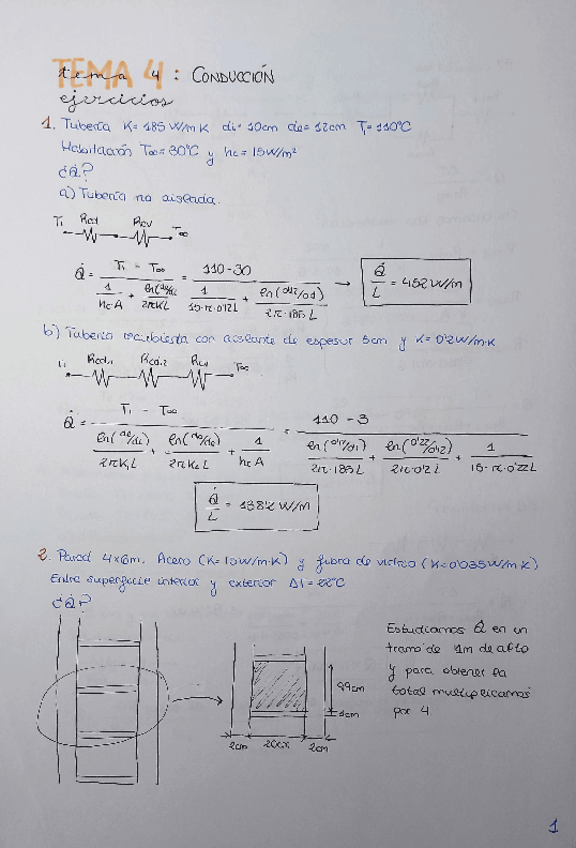 TEMA 4
tema 4 : CONDUCCIÓN
ejercicios
1. Tubería K= 185 W/m·K di= 10cm de= 12cm T₁= 110°C
Habitación T∞= 30°C y hc= 15W/m²
¿Q̇?
a) Tubería no aislada.
T₁ Rcd Rcv T∞
Q̇ = (T₁ - T∞) / (1/(hc A) + ln(de/di)/(2πKL)) = (110-30) / (1/(15·π·0'12L) + ln(0'12/0'1)/(2π·185 L)) → Q̇/L = 452 W/m
b) Tubería recubierta con aislante de espesor 5cm y K= 0'2 W/m·K
T₁ Rcd,1 Rcd,2 Rcv T∞
Q̇ = (T₁ - T∞) / (ln(de/di)/(2πK₁L) + ln(do/de)/(2πK₂L) + 1/(hc A)) = (110 - 3) / (ln(0'12/0'1)/(2π·185L) + ln(0'22/0'12)/(2π·0'2L) + 1/(15·π·0'22L))
Q̇/L = 138'2 W/m
2. Pared 4x6m. Acero (K= 15W/m·K) y fibra de vidrio (K=0'035W/m·K)
Entre superficie interior y exterior ΔT=22°C
¿Q̇?
Estudiamos Q̇ en un
tramo de 1m de alto
y para obtener la
total multiplicamos
por 4
99cm
1cm
2cm 20cm 2cm
1